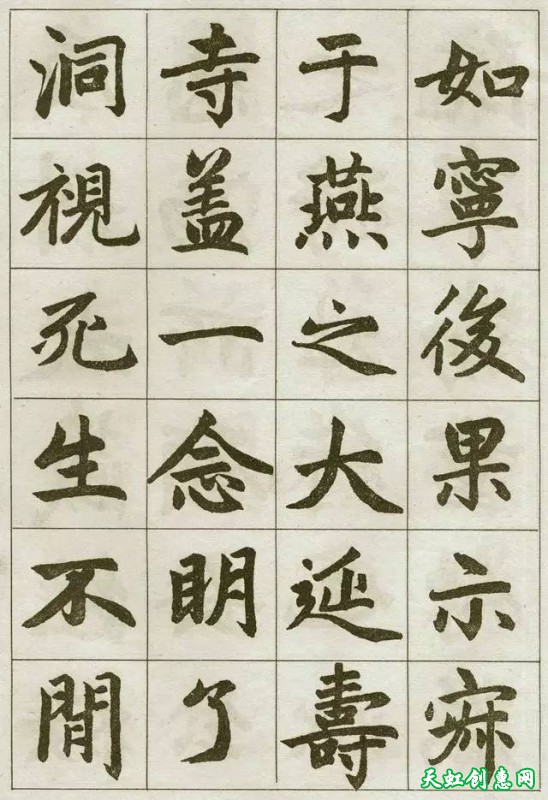 如寧後果示寂
于燕之大延壽
寺盖一念明了
洞視死生不閒
天虹创惠网